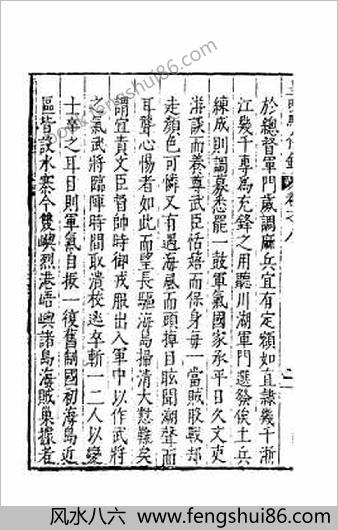 於總督軍門歲調麻兵宜有定額如直隷幾千浙
江幾千專為充鋒之用聽川湖軍門選發俟土兵
練成則調募悉罷一鼓軍氣國家承平日久文吏
游談而養尊武臣恬嬉而保身每一當敵股戰却
走顏色可憐又有遇海風而頭掉目眩聞潮聲而
耳聾心惕者如此而望長驅海島掃清大憝難矣
謂宜責文臣督帥時御戎服出入軍中以作武將
之氣武將臨陣時間取潰校逃卒斬一二人以變
士卒之耳目則軍氣自振一復舊制國初海島近
區皆設水寨今雙嶼烈港峿嶼諸島海賊巢據者
www.fengshui86.com
风水八六－www.fengshui86.com